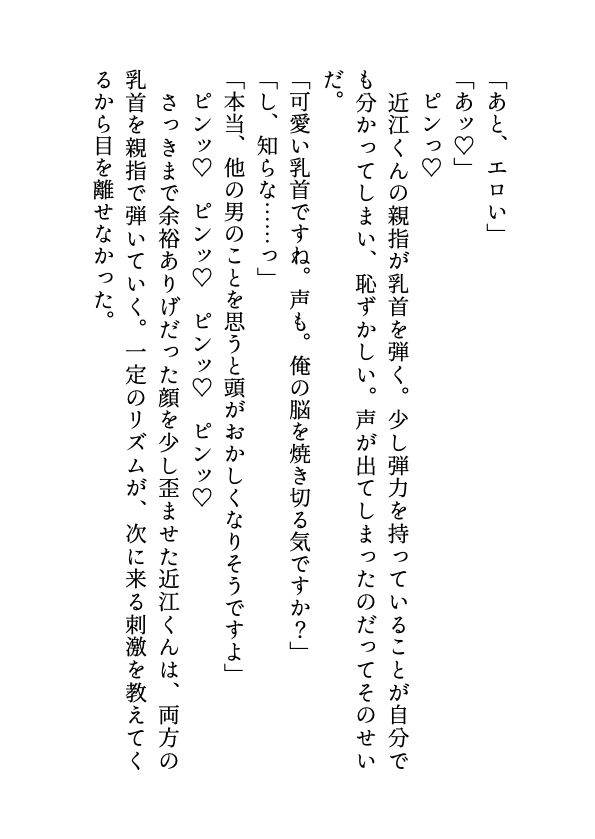 「あと、エロい」
「あッ♡」
　ピンっ♡
　近江くんの親指が乳首を弾く。少し弾力を持っていることが自分で
も分かってしまい、恥ずかしい。声が出てしまったのだってそのせい
だ。
「可愛い乳首ですね。声も。俺の脳を焼き切る気ですか？」
「し、知らな……っ」
「本当、他の男のことを思うと頭がおかしくなりそうですよ」
　ピンッ♡　ピンッ♡　ピンッ♡　ピンッ♡
　さっきまで余裕ありげだった顔を少し歪ませた近江くんは、両方の
乳首を親指で弾いていく。一定のリズムが、次に来る刺激を教えてく
るから目を離せなかった。